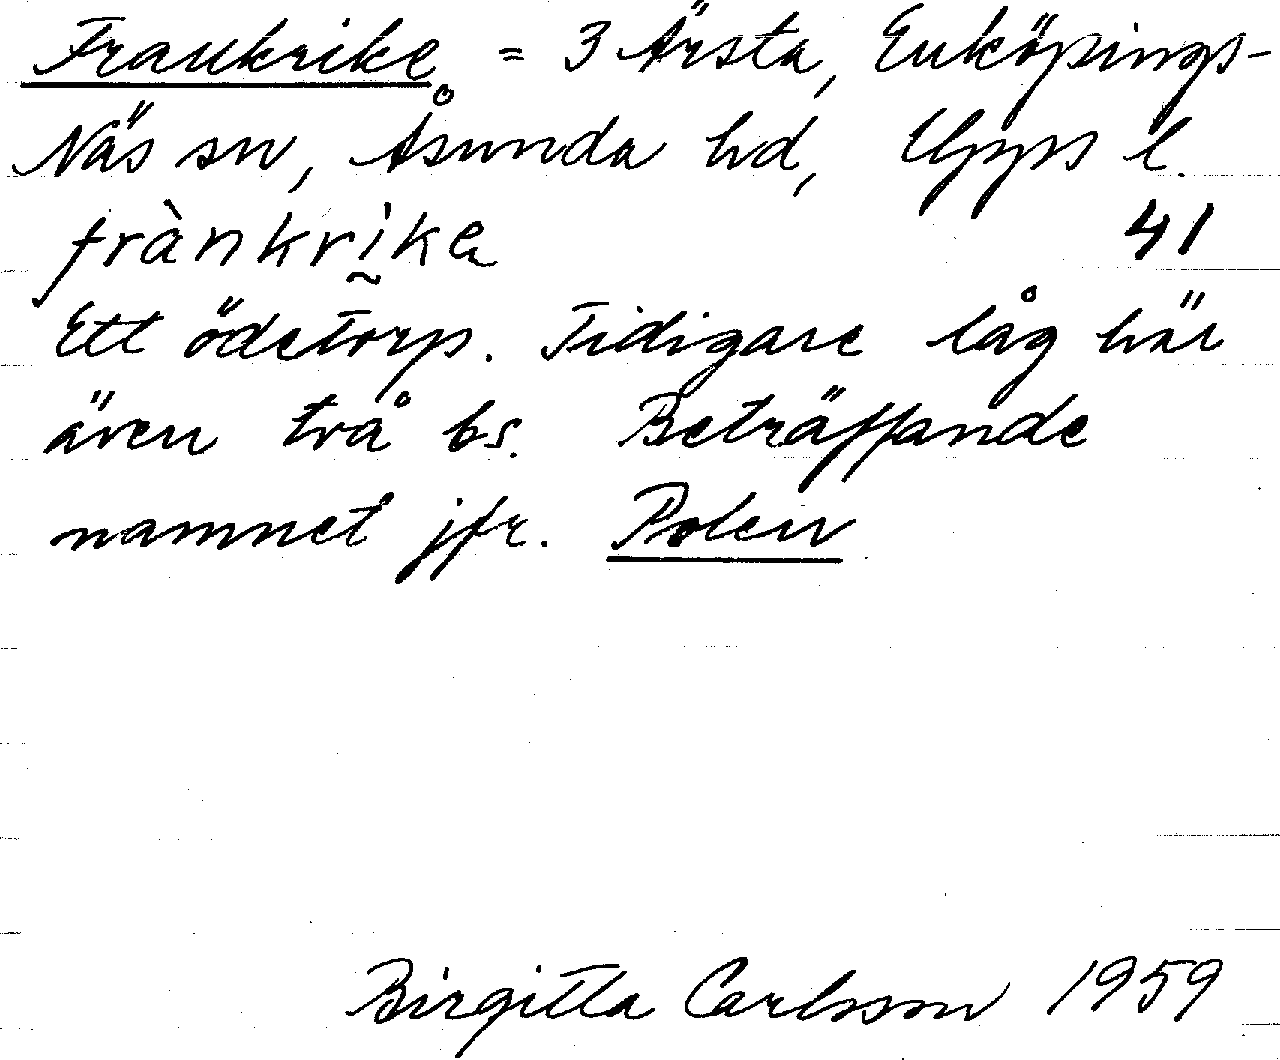 Frankrike = 3 Ärsta, Enköpings-
Näs sn, Åsunda hd, Upps l.
frànkrìke 41
Ett ödetorp. Tidigare låg här
även två bs. Beträffande
namnet jfr. Polen
Birgitta Carlsson 1959